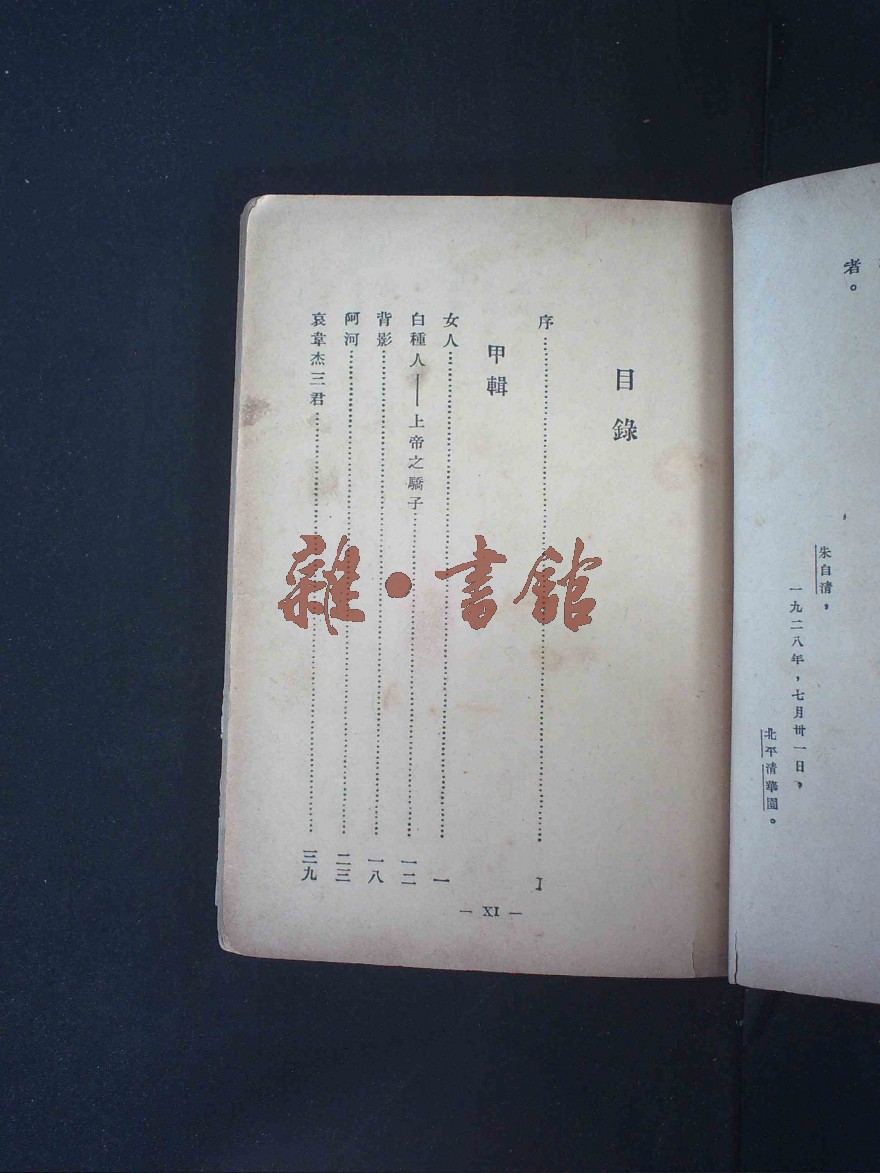 者。
朱自清，
一九二八年，七月卅一日，
北平清華園。
目錄
序……I
甲輯
女人……一
白種人——上帝之驕子……一二
背影……一八
阿河……二三
哀韋杰三君……三九
— XI —
雜·書館